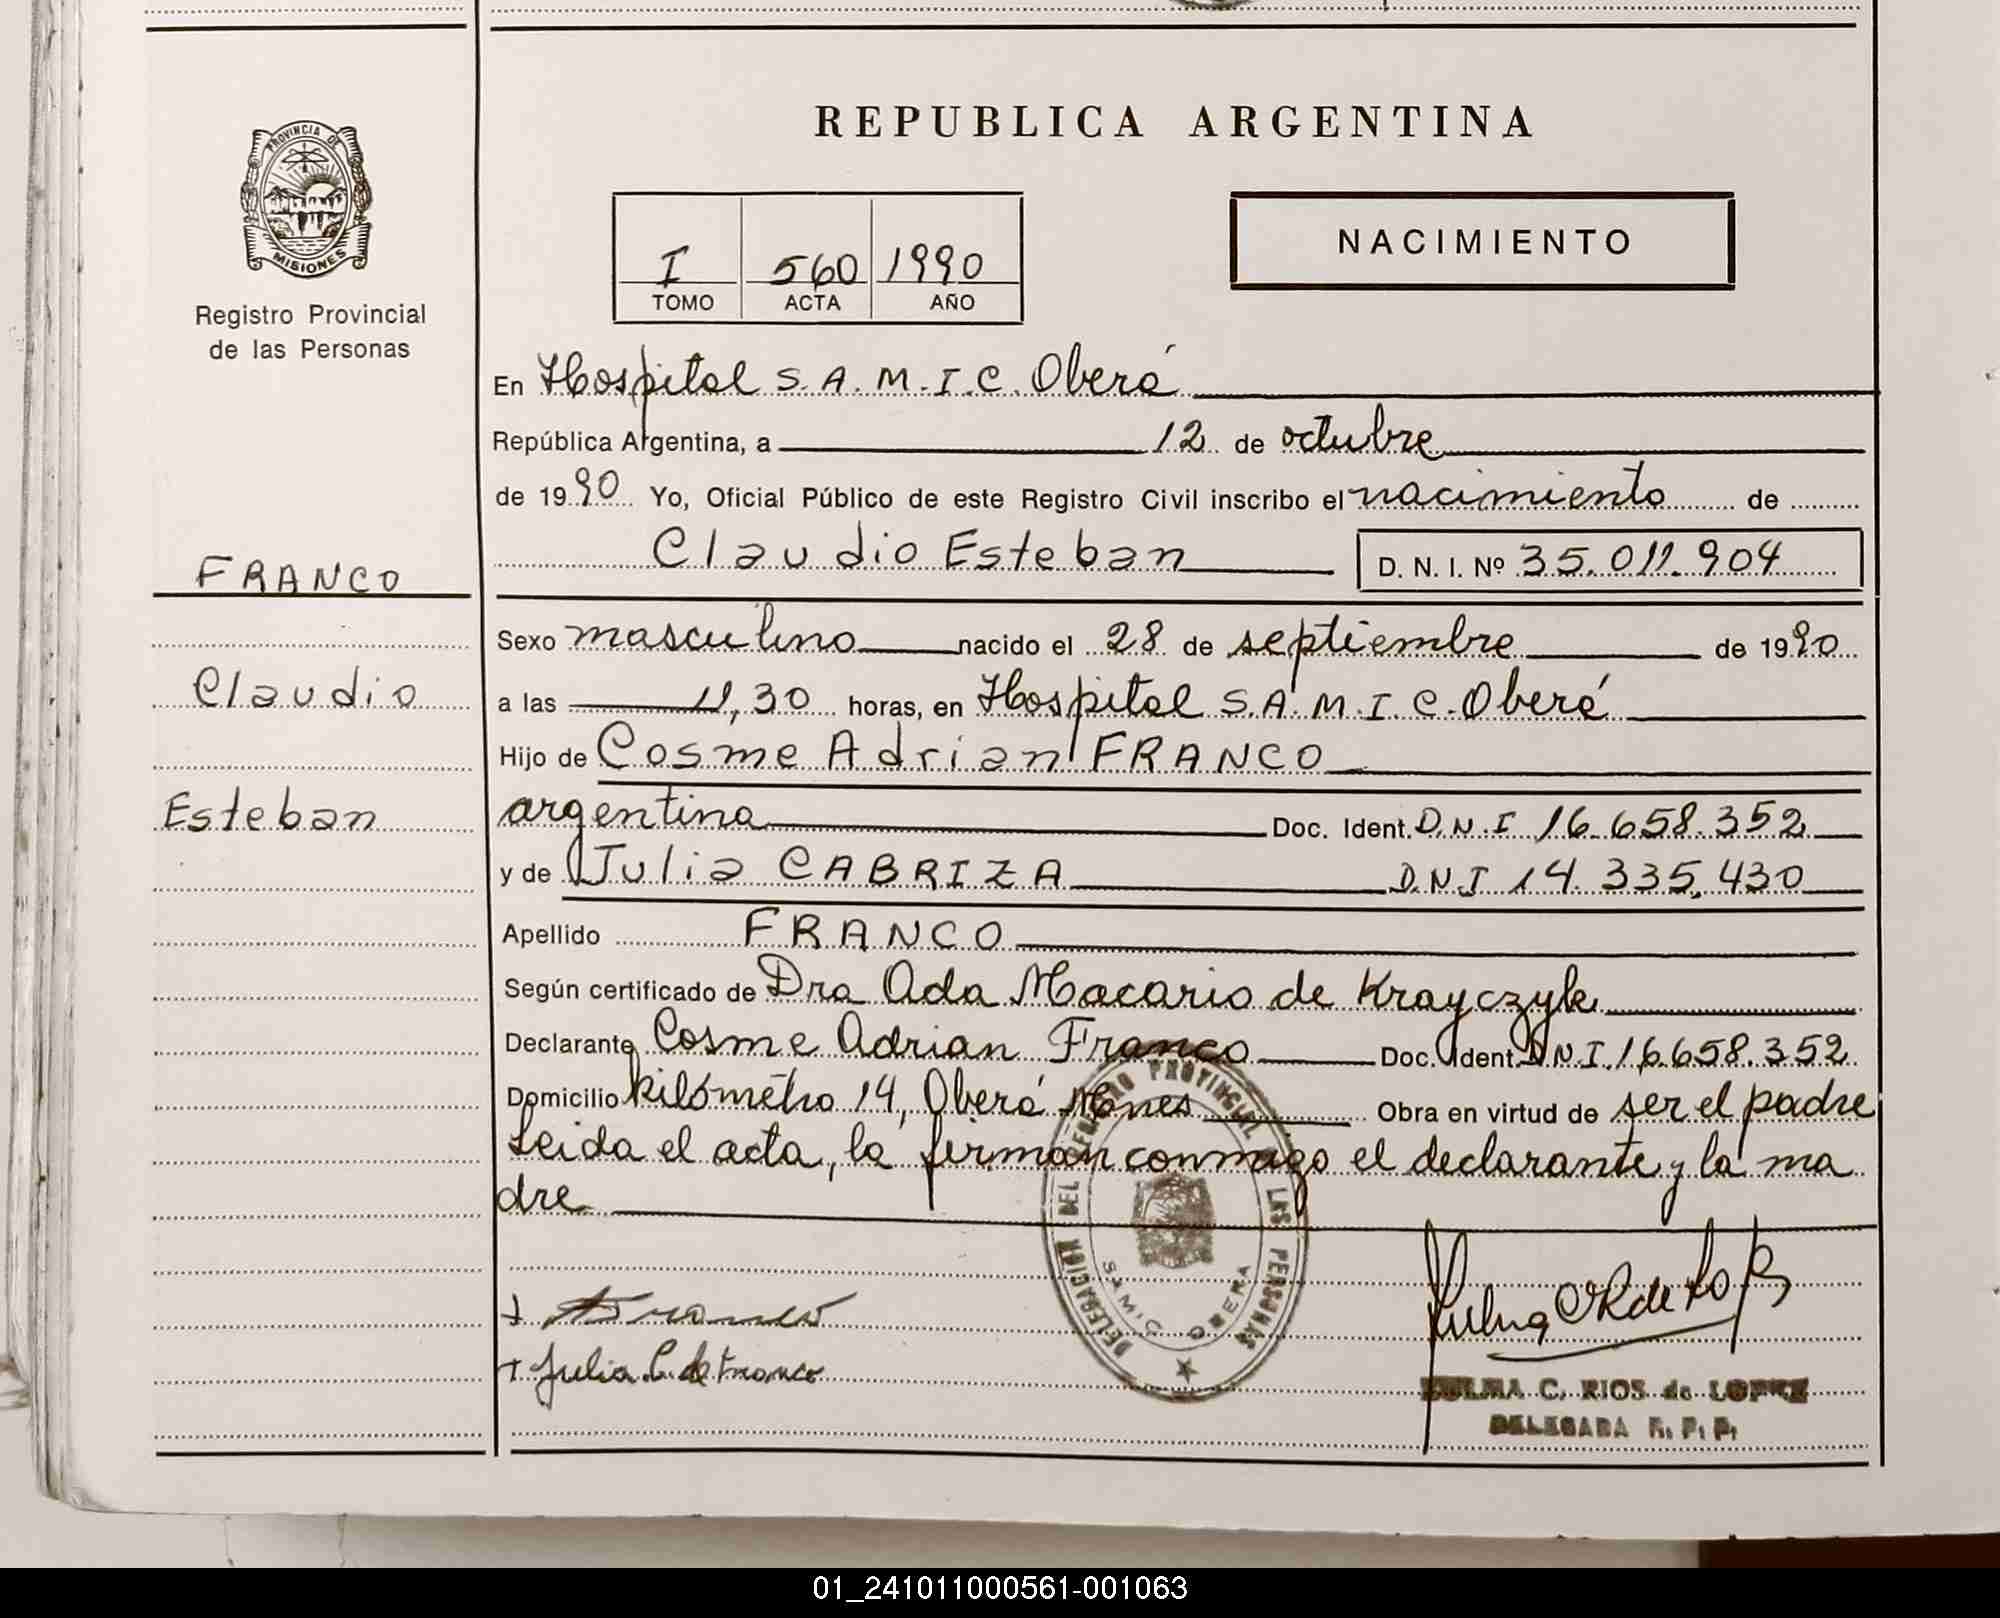 REPUBLICA ARGENTINA
PROVINCIA DE
MISIONES
Registro Provincial
de las Personas
I 560 1990
TOMO ACTA AÑO
NACIMIENTO
En Hospital S.A.M.I.C. Oberá
República Argentina, a 12 de octubre
de 1990 Yo, Oficial Público de este Registro Civil inscribo el nacimiento de
Claudio Esteban D. N. I. Nº 35.011.904
FRANCO
Claudio
Esteban
Sexo masculino nacido el 28 de septiembre de 1990
a las 11,30 horas, en Hospital S.A.M.I.C. Oberá
Hijo de Cosme Adrian FRANCO
argentina Doc. Ident. D.N.I 16.658.352
y de Julia CABRIZA D.N.I 14.335.430
Apellido FRANCO
Según certificado de Dra Ada Macario de Krayczyk
Declarante Cosme Adrian Franco Doc. Ident. D.N.I. 16.658.352
Domicilio kilómetro 14, Oberá Mnes Obra en virtud de ser el padre
Leida el acta, la firman conmigo el declarante y la ma
dre
DELEGACIÓN DEL REGISTRO PROVINCIAL DE LAS PERSONAS
SAMIC OBERA
+ Franco
+ Julia C. de Franco
C. RIOS de LOPEZ
DELEGADA R. P. P.
01_241011000561-001063